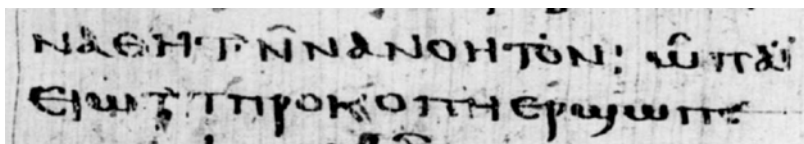 ⲛⲁⲑⲏⲧ ⲛ̄ⲛⲁⲛⲟⲏⲧⲟⲛ: ⲱ̂ ⲡⲁⲓ̈
ⲉⲓⲱⲧ ⲧⲡⲣⲟⲕⲟⲡⲏ ⲉⲣϣⲱⲡⲉ